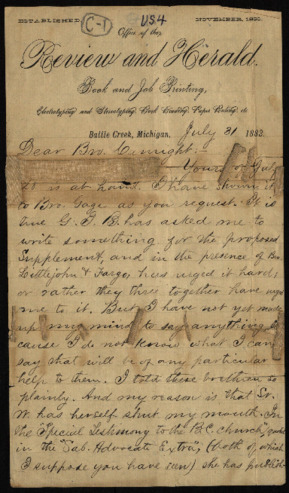 ESTABLISHED
C-1
USA
NOVEMBER, 1850.
Office of the
Review and Herald.
Book and Job Printing,
Electrotyping and Stereotyping, Book Binding, Paper Ruling, etc
Battle Creek, Michigan, July 31 1883.
Dear Bro. Canright:—
Yours of July
is at hand. I have given it
to Bro. Gage as you request. It is
true G. I. B. has asked me to
write something for the proposed
Supplement, and in the presence of Bro
Littlejohn & Gage, has urged it hard,
or rather they three together have urged
me to it. But I have not yet made
up my mind to say anything be
cause I do not know what I can
say that will be of any particular
help to them. I told these brethren so
plainly. And my reason is that Sr.
W. has herself shut my mouth. In
the Special Testimony to the B.C. church,
in the "Sab. Advocate Extra", (both of which
I suppose you have seen) she has publish